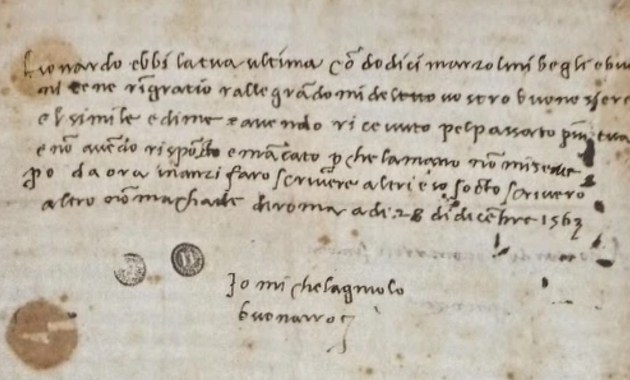 Lionardo ebbi la tua ultima cō dodici marzolini begli e buo
ni te ne rīgratio rallegrādomi del tucto vostro buono essere
el simile e di me e avendo ricevuto pel passato piu tua
e nō avēdo risposto e mācato p che la mano nō mi serve
po da ora inanzi faro scrivere altri e io soctoscrivero
altro nō machade di roma a di 28 di dicēbre 1563
Io michelagniolo
buonarroti